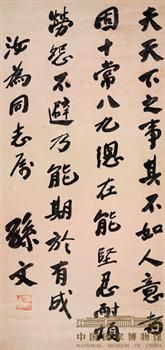 夫天下之事其不如人意者
固十常八九總在能堅忍耐煩
勞怨不避乃能期於有成
汝為同志屬
孫文
中国国家博物馆
NATIONAL MUSEUM OF CHINA